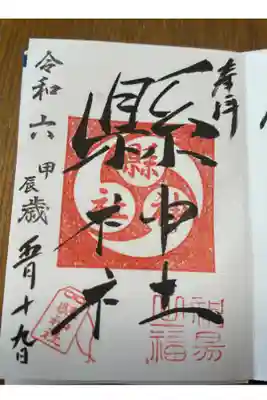 奉拝
縣神社
令和六甲辰歳五月十九日
縣
神
社